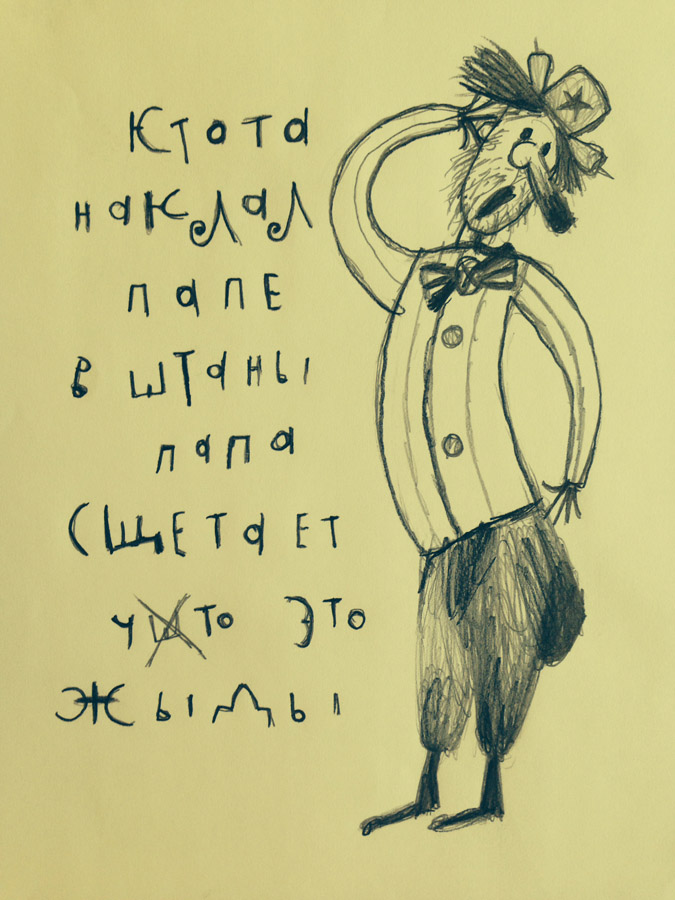 Ктота
наклал
папе
в штаны
папа
сщетает
что это
жыды